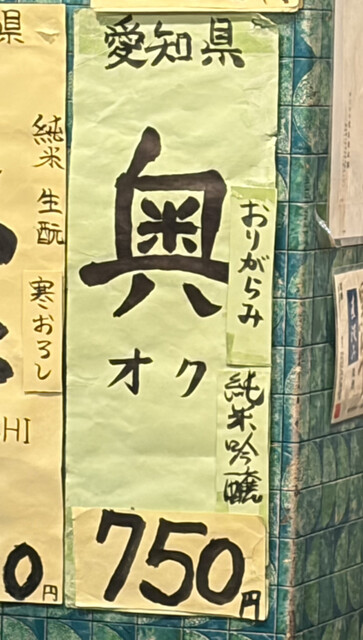 愛知県
奥
オク
おりがらみ
純米吟醸
750円
県
純米 生酛
寒おろし
HI
0円